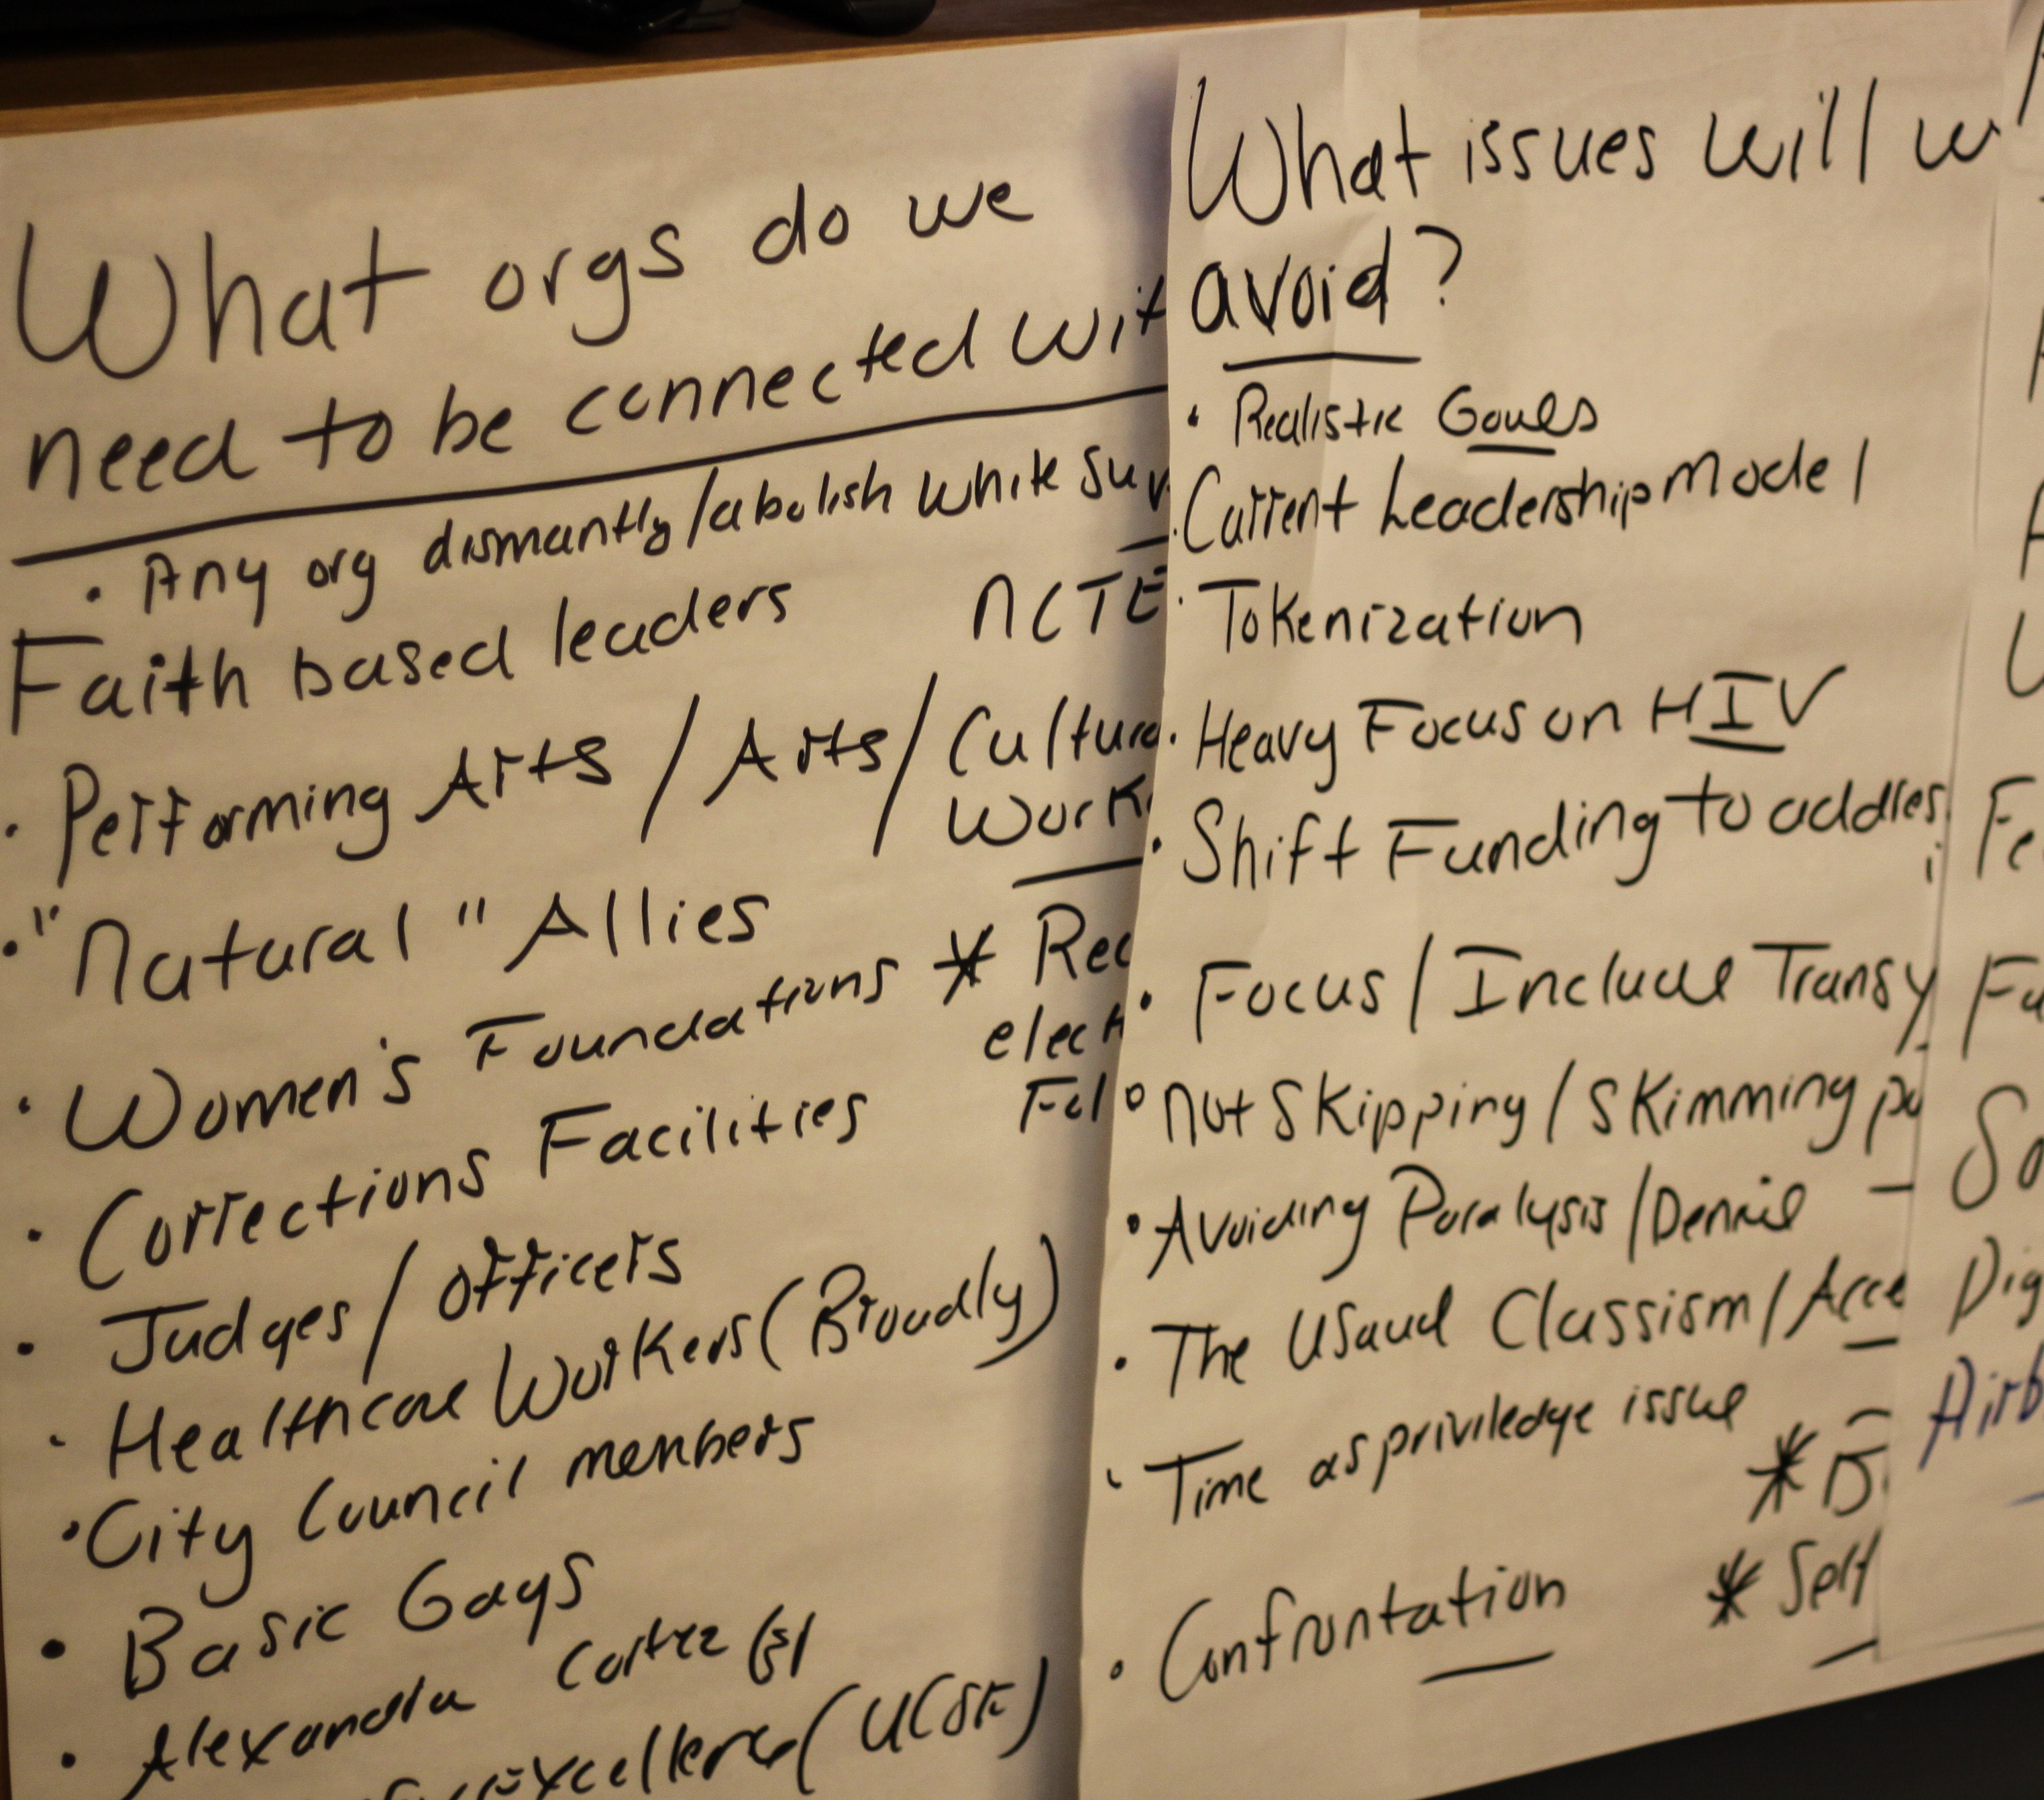 What orgs do we
need to be connected wit
• Any org dismantly/abolish white Su
Faith based leaders
NCTE
• Performing Arts / Arts / Cultura
Work
• "Natural" Allies
• Women's Foundations * Rec
elect
• Corrections Facilities
• Judges / Officers
• Healthcare Workers (Broadly)
• City Council members
• Basic Gays
• Alexandra Cortez
Excellence (UCSF)
What issues will w
avoid?
• Realistic Goals
• Current Leadership Model
• Tokenization
• Heavy Focus on HIV
• Shift Funding to addres
• Focus / Include Transy
• Not Skipping / Skimming
• Avoiding Paralysis / Denial
• The Usaul Classism / Acce
• Time as priviledge issue
• Confrontation
* Self
Fe
Fu
So
Dig
Airb